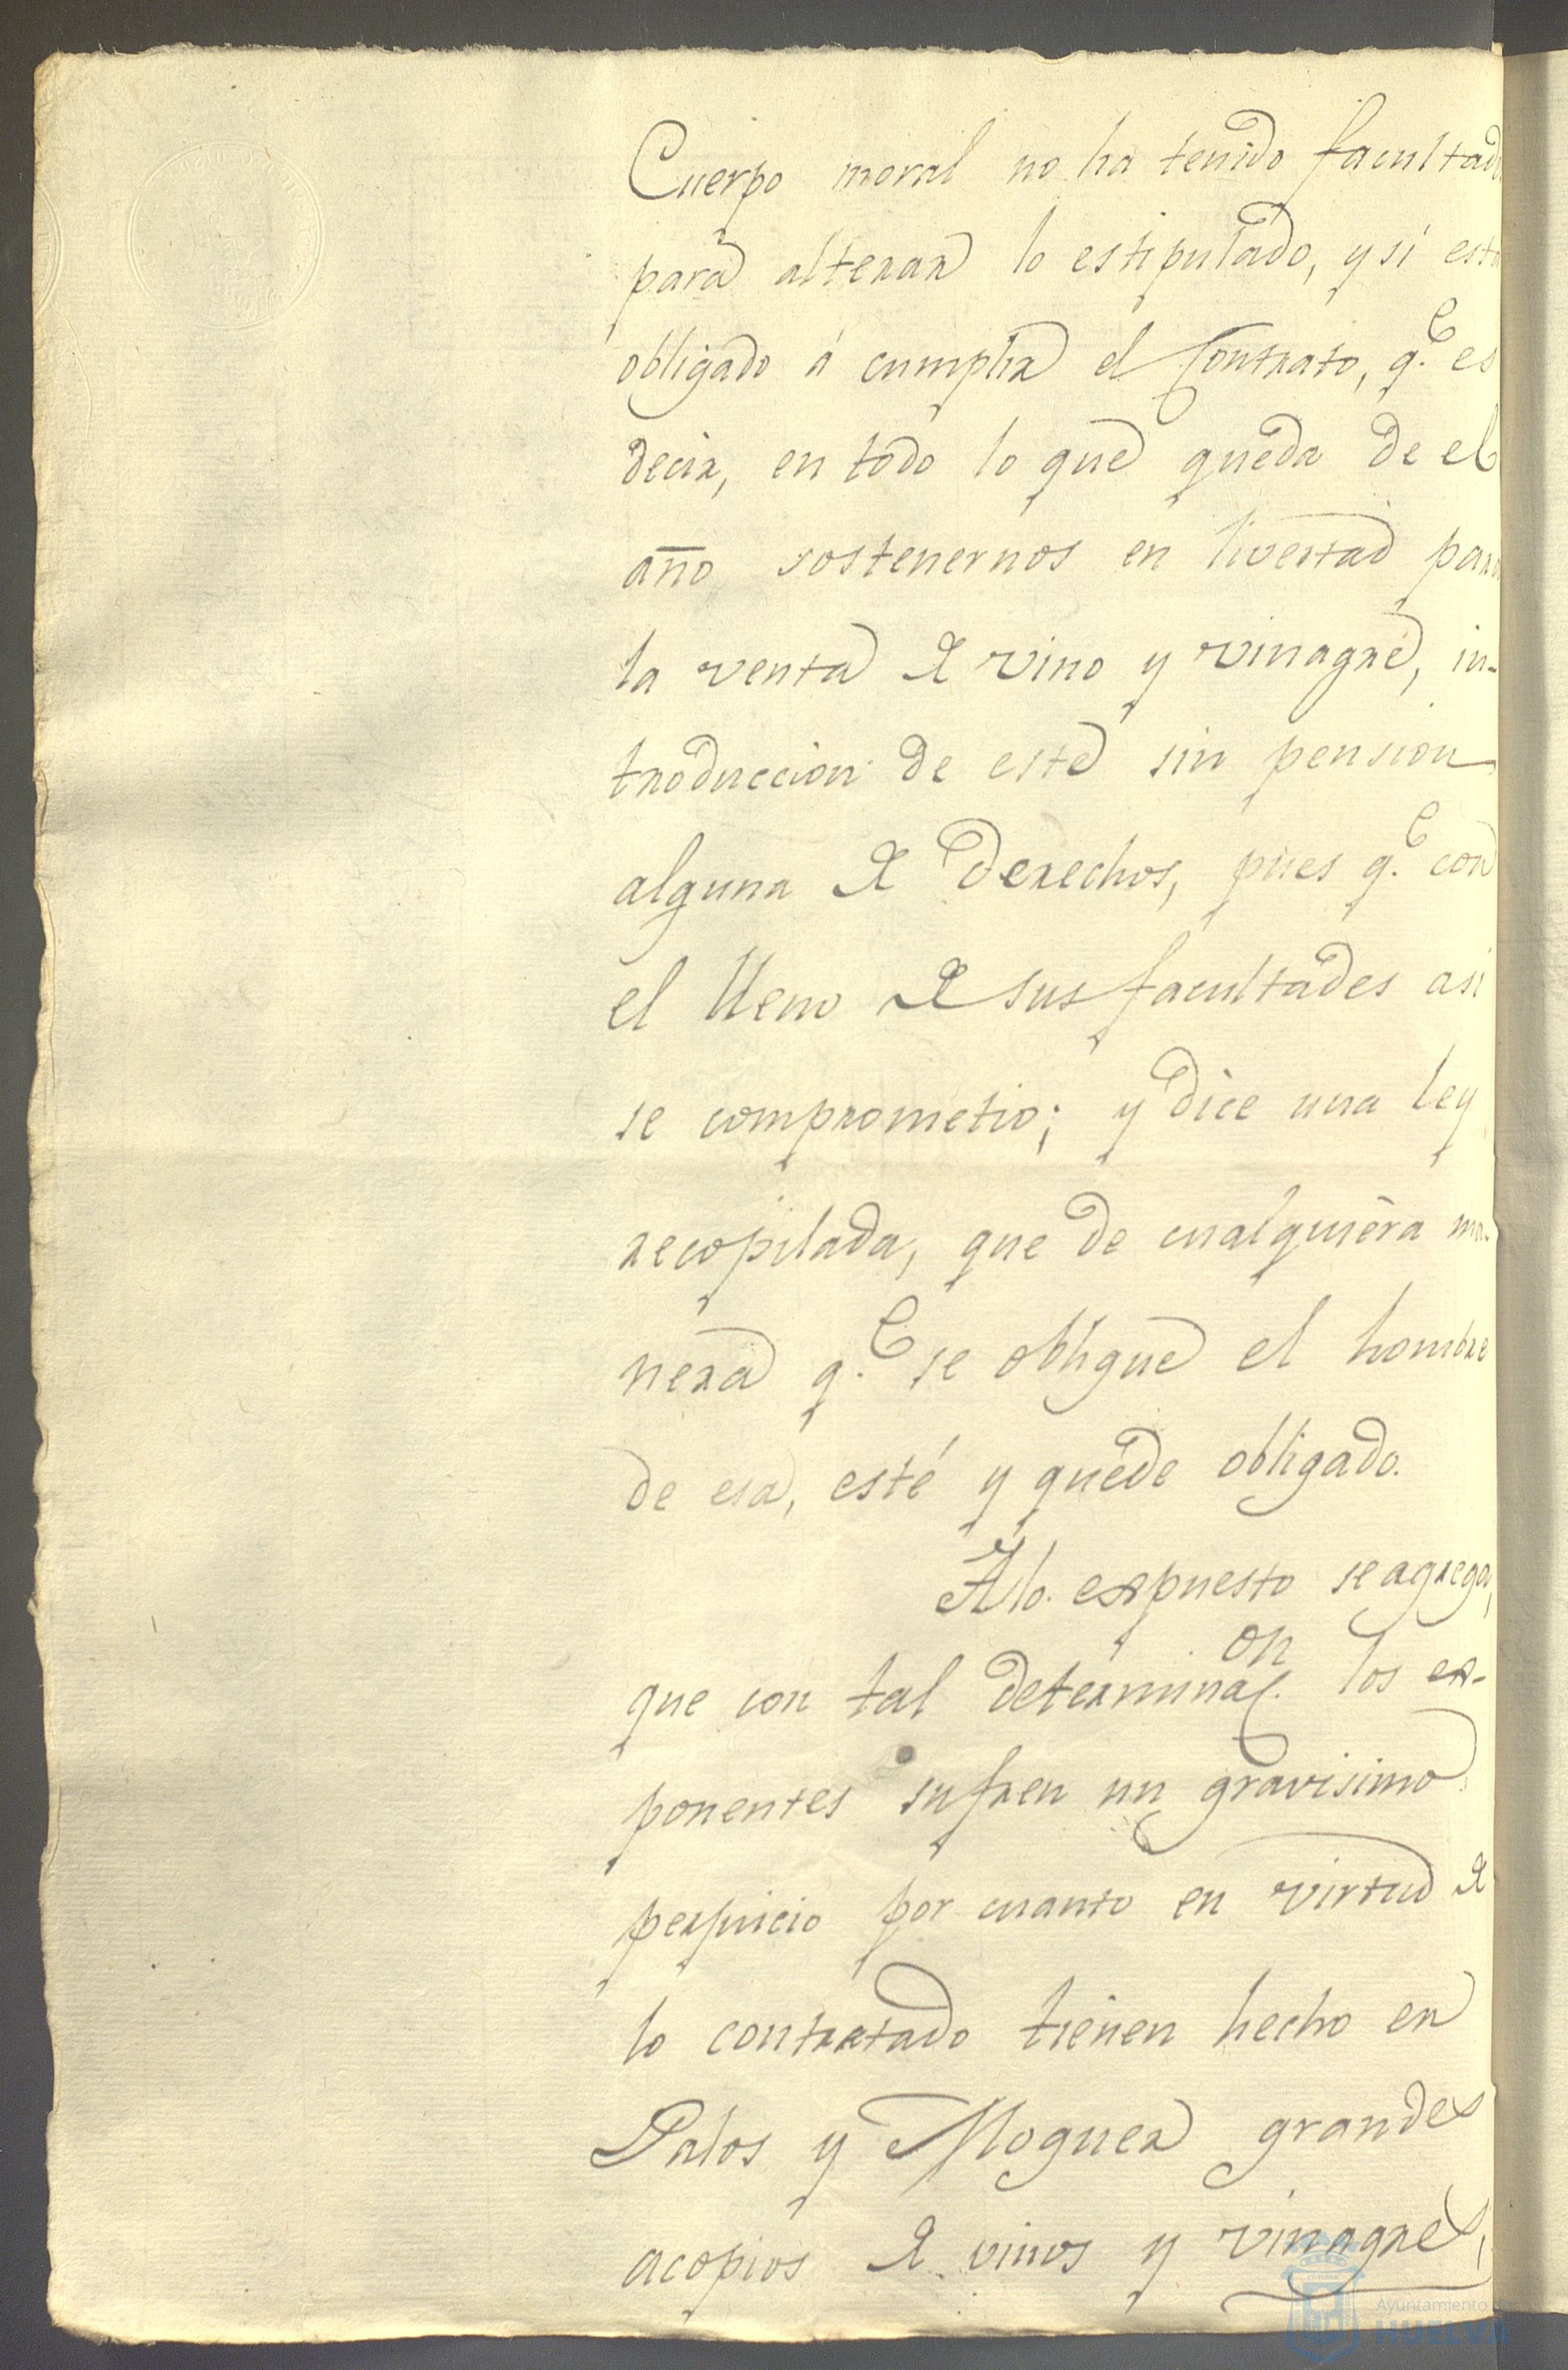 Cuerpo moral no ha tenido facultad
para alterar lo estipulado, y sí está
obligado á cumplir el Contrato, q.e es
decir, en todo lo que queda de el
año sostenernos en livertad para
la venta de vino y vinagre, in-
troduccion de este sin pension
alguna de derechos, pues q.e con
el lleno de sus facultades asi
se comprometio; y dice una ley
recopilada, que de cualquiera ma-
nera q.e se obligue el hombre
de esa, esté y quede obligado.
A lo expuesto se agrega,
que con tal determinac.on los ex-
ponentes sufren un gravisimo
perjuicio por cuanto en virtud de
lo contratado tienen hecho en
Palos y Moguer grandes
acopios de vinos y vinagres,
Ayuntamiento de
HUELVA